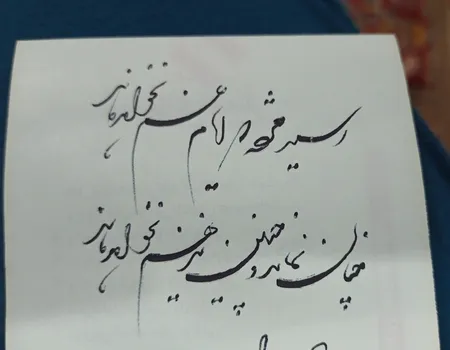 رسید مژده که ایام غم نخواهد ماند
چنان نماند و چنین نیز هم نخواهد ماند